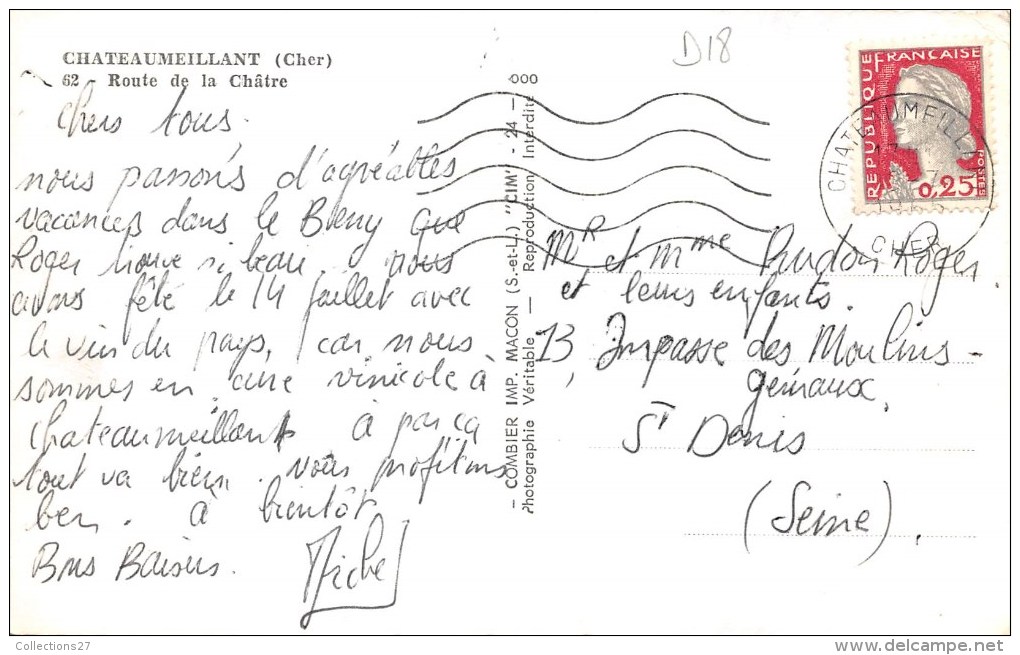 CHATEAUMEILLANT (Cher)
62 - Route de la Châtre
D18
Chers tous.
nous passons d'agréables
vacances dans le Berry que
Roger trouve si beau. Nous
avons fêté le 14 juillet avec
le vin du pays, car nous
sommes en cure vinicole à
Chateaumeillant à par ça
tout va bien. nous profitons
ben. à bientôt
Bons Baisers.
Michel
- COMBIER IMP. MACON (S.-et-L.) "CIM"
Photographie Véritable - Reproduction Interdite - 24 - 000
REPUBLIQUE FRANÇAISE
POSTES
0,25
CHATEAUMEILLA
CHER
Mr et mme Roger
et leurs enfants.
13, Impasse des Moulins -
gémaux,
St Denis
(Seine).
Collections27
delcampe.net